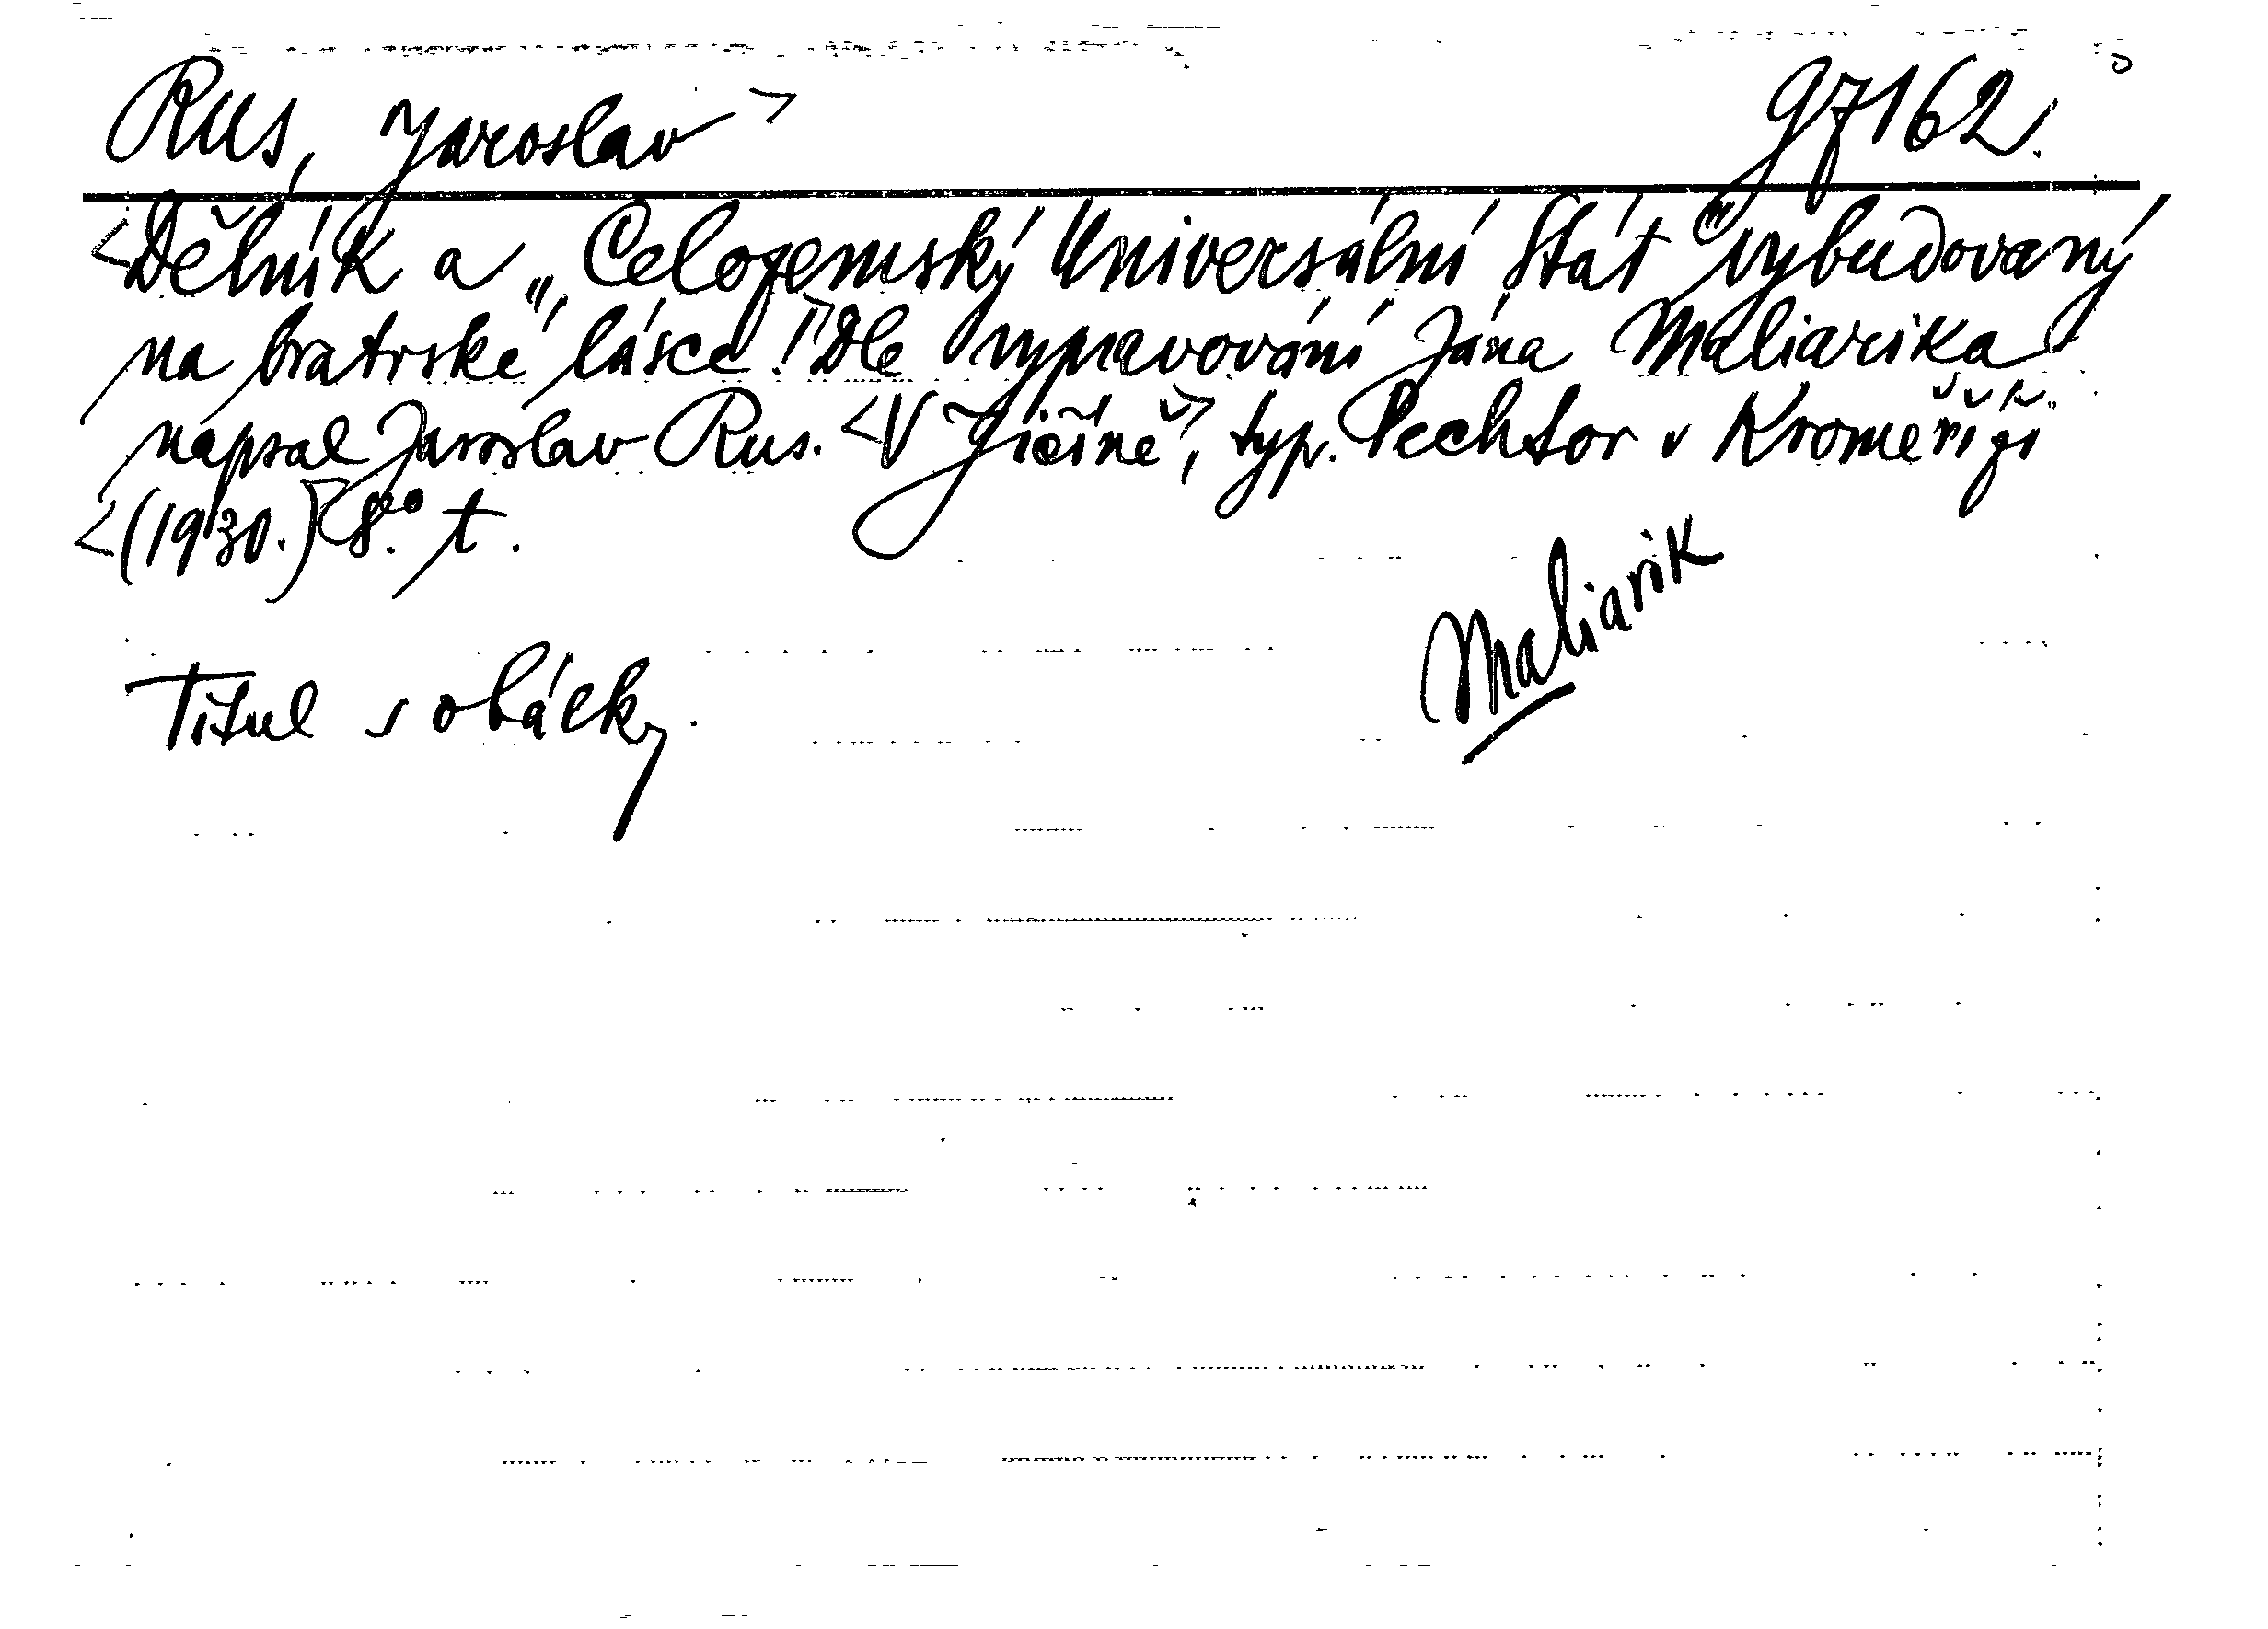 Rus, Jaroslav > 97162.
<Dělník a „Celozemský Universální Stát" vybudovaný
na bratrské lásce!> Dle vypravování Jána Maliarika
napsal Jaroslav Rus. <V Jičíně>, typ. Pechtor v Kroměříži
<(1930.)> 8.° t.
Maliarik
Titul s obálky.